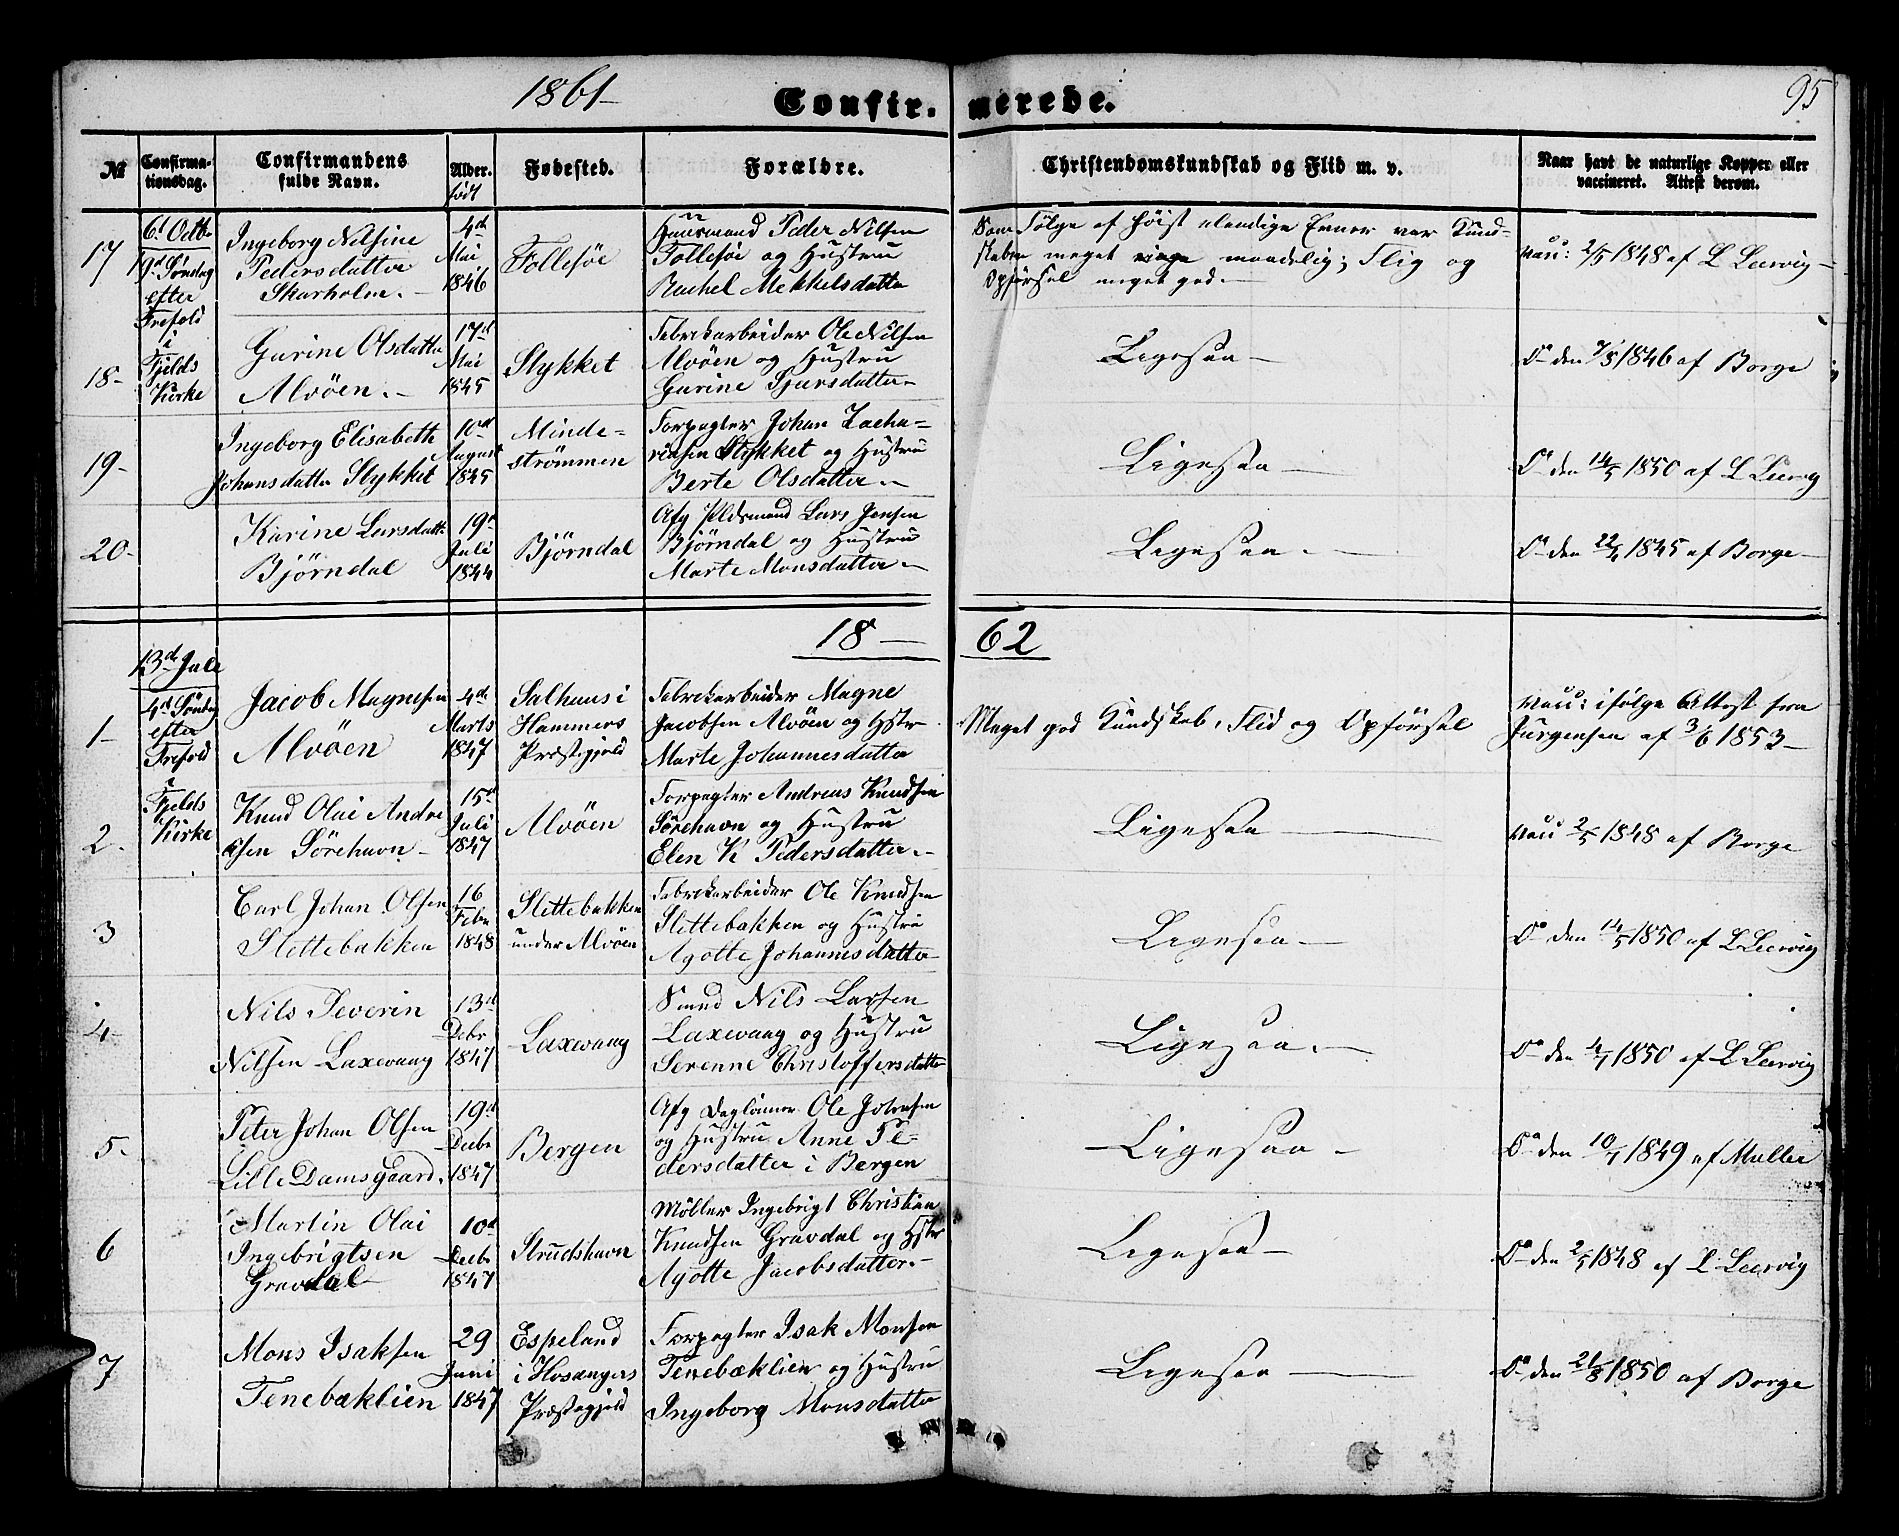 1861-
Confir-merede.
95
№
Confirma-
tionsdag.
Confirmandens
fulde Navn.
Alder.
født
Fødested.
Forældre.
Christendomskundskab og Flid m. v.
Naar havt de naturlige Kopper eller
vaccineret. Attest derom.
17
6t Octbr
19d Søndag
efter
Trefold
i
Fjelds
Kirke
Ingeborg Nilsine
Pedersdatter
Skarholm.
4de
Mai
1846
Follesöe
Huusmand Peder Nilsen
Follesöe og Hustru
Rachel Mekkelsdatter
Som Følge af høist elendige Evner var Kund-
skaben meget maadelig; Flig og
Opførsel meget god.
vacc: 2/5 1848 af L Leervig
18-
Gurine Olsdatter
Alvöen.
17d
Mai
1845
Stykket
Fabrekarbeider Ole Nilsen
Alvöen og Hustru
Gurine Sjursdatter
Ligesaa
Do den 7/8 1846 af Borge
19-
Ingeborg Elisabeth
Johansdatter Stykket
10d
August
1845
Minde-
strömmen
Forpagter Johan Zacha-
riasen Stykket og Hustru
Berte Olsdatter
Ligesaa
Do den 14/5 1850 af L Leervig
20-
Karine Larsdatter
Björndal
19d
Juli
1844
Björndal
Afg Pldsmand Lars Jensen
Björndal og Hustru
Marte Monsdatter
Ligesaa
Do den 22/4 1845 af Borge
18-62
1-
13d Juli
4d Söndag
efter
Trefold
i
Fjelds
Kirke
Jacob Magnesen
Alvöen
4de
Marts
1847
Salhuus i
Hammers
Præstegjeld
Fabrekarbeider Magne
Jacobsen Alvöen og Hstr
Marte Johannesdatter
Meget god Kundskab, Flid og Opförsel
vacc: ifølge Attest fra
Jürgensen af 3/6 1853
2-
Knud Olai Andre
asen Sörehavn
15d
Juli
1847
Alvöen
Forpagter Andreas Knudsen
Sörehavn og Hustru
Elen K Pedersdatter
Ligesaa
vacc 2/5 1848 af Borge
3
Carl Johan Olsen
Slettebakken
16
Febr
1848
Slettebakken
under Alvöen
Fabrekarbeider Ole Knudsen
Slettebakken og Hustru
Agotte Johannesdatter
Ligesaa
Do den 14/5 1850 af L Leervig
4-
Nils Severin
Nilsen Laxevaag
13d
Debr
1847
Laxevaag
Smed Nils Larsen
Laxevaag og Hustru
Serenne Christoffersdatter
Ligesaa
Do den 4/7 1850 af L Leervig
5-
Peter Johan Olsen
Lille Damsgaard.
19d
Decbr
1847
Bergen
Afg Daglönner Ole Johnsen
og Hustru Anne Pe-
dersdatter i Bergen
Ligesaa
Do den 10/7 1849 af Müller
6
Martin Olai
Ingebrigtsen
Gravdal
10d
Decbr
1847
Strudshavn
Möller Ingebrigt Christian
Knudsen Gravdal og Hstr
Agotte Jacobsdatter
Ligesaa
Do den 2/5 1848 af L Leervig
7
Mons Isaksen
Tenebæklien
29
Juni
1847
Espeland
i Hosangers
Præstegjeld
Forpagter Isak Monsen
Tenebæklien og Hustru
Ingeborg Monsdatter
Ligesaa
Do den 21/8 1850 af Borge